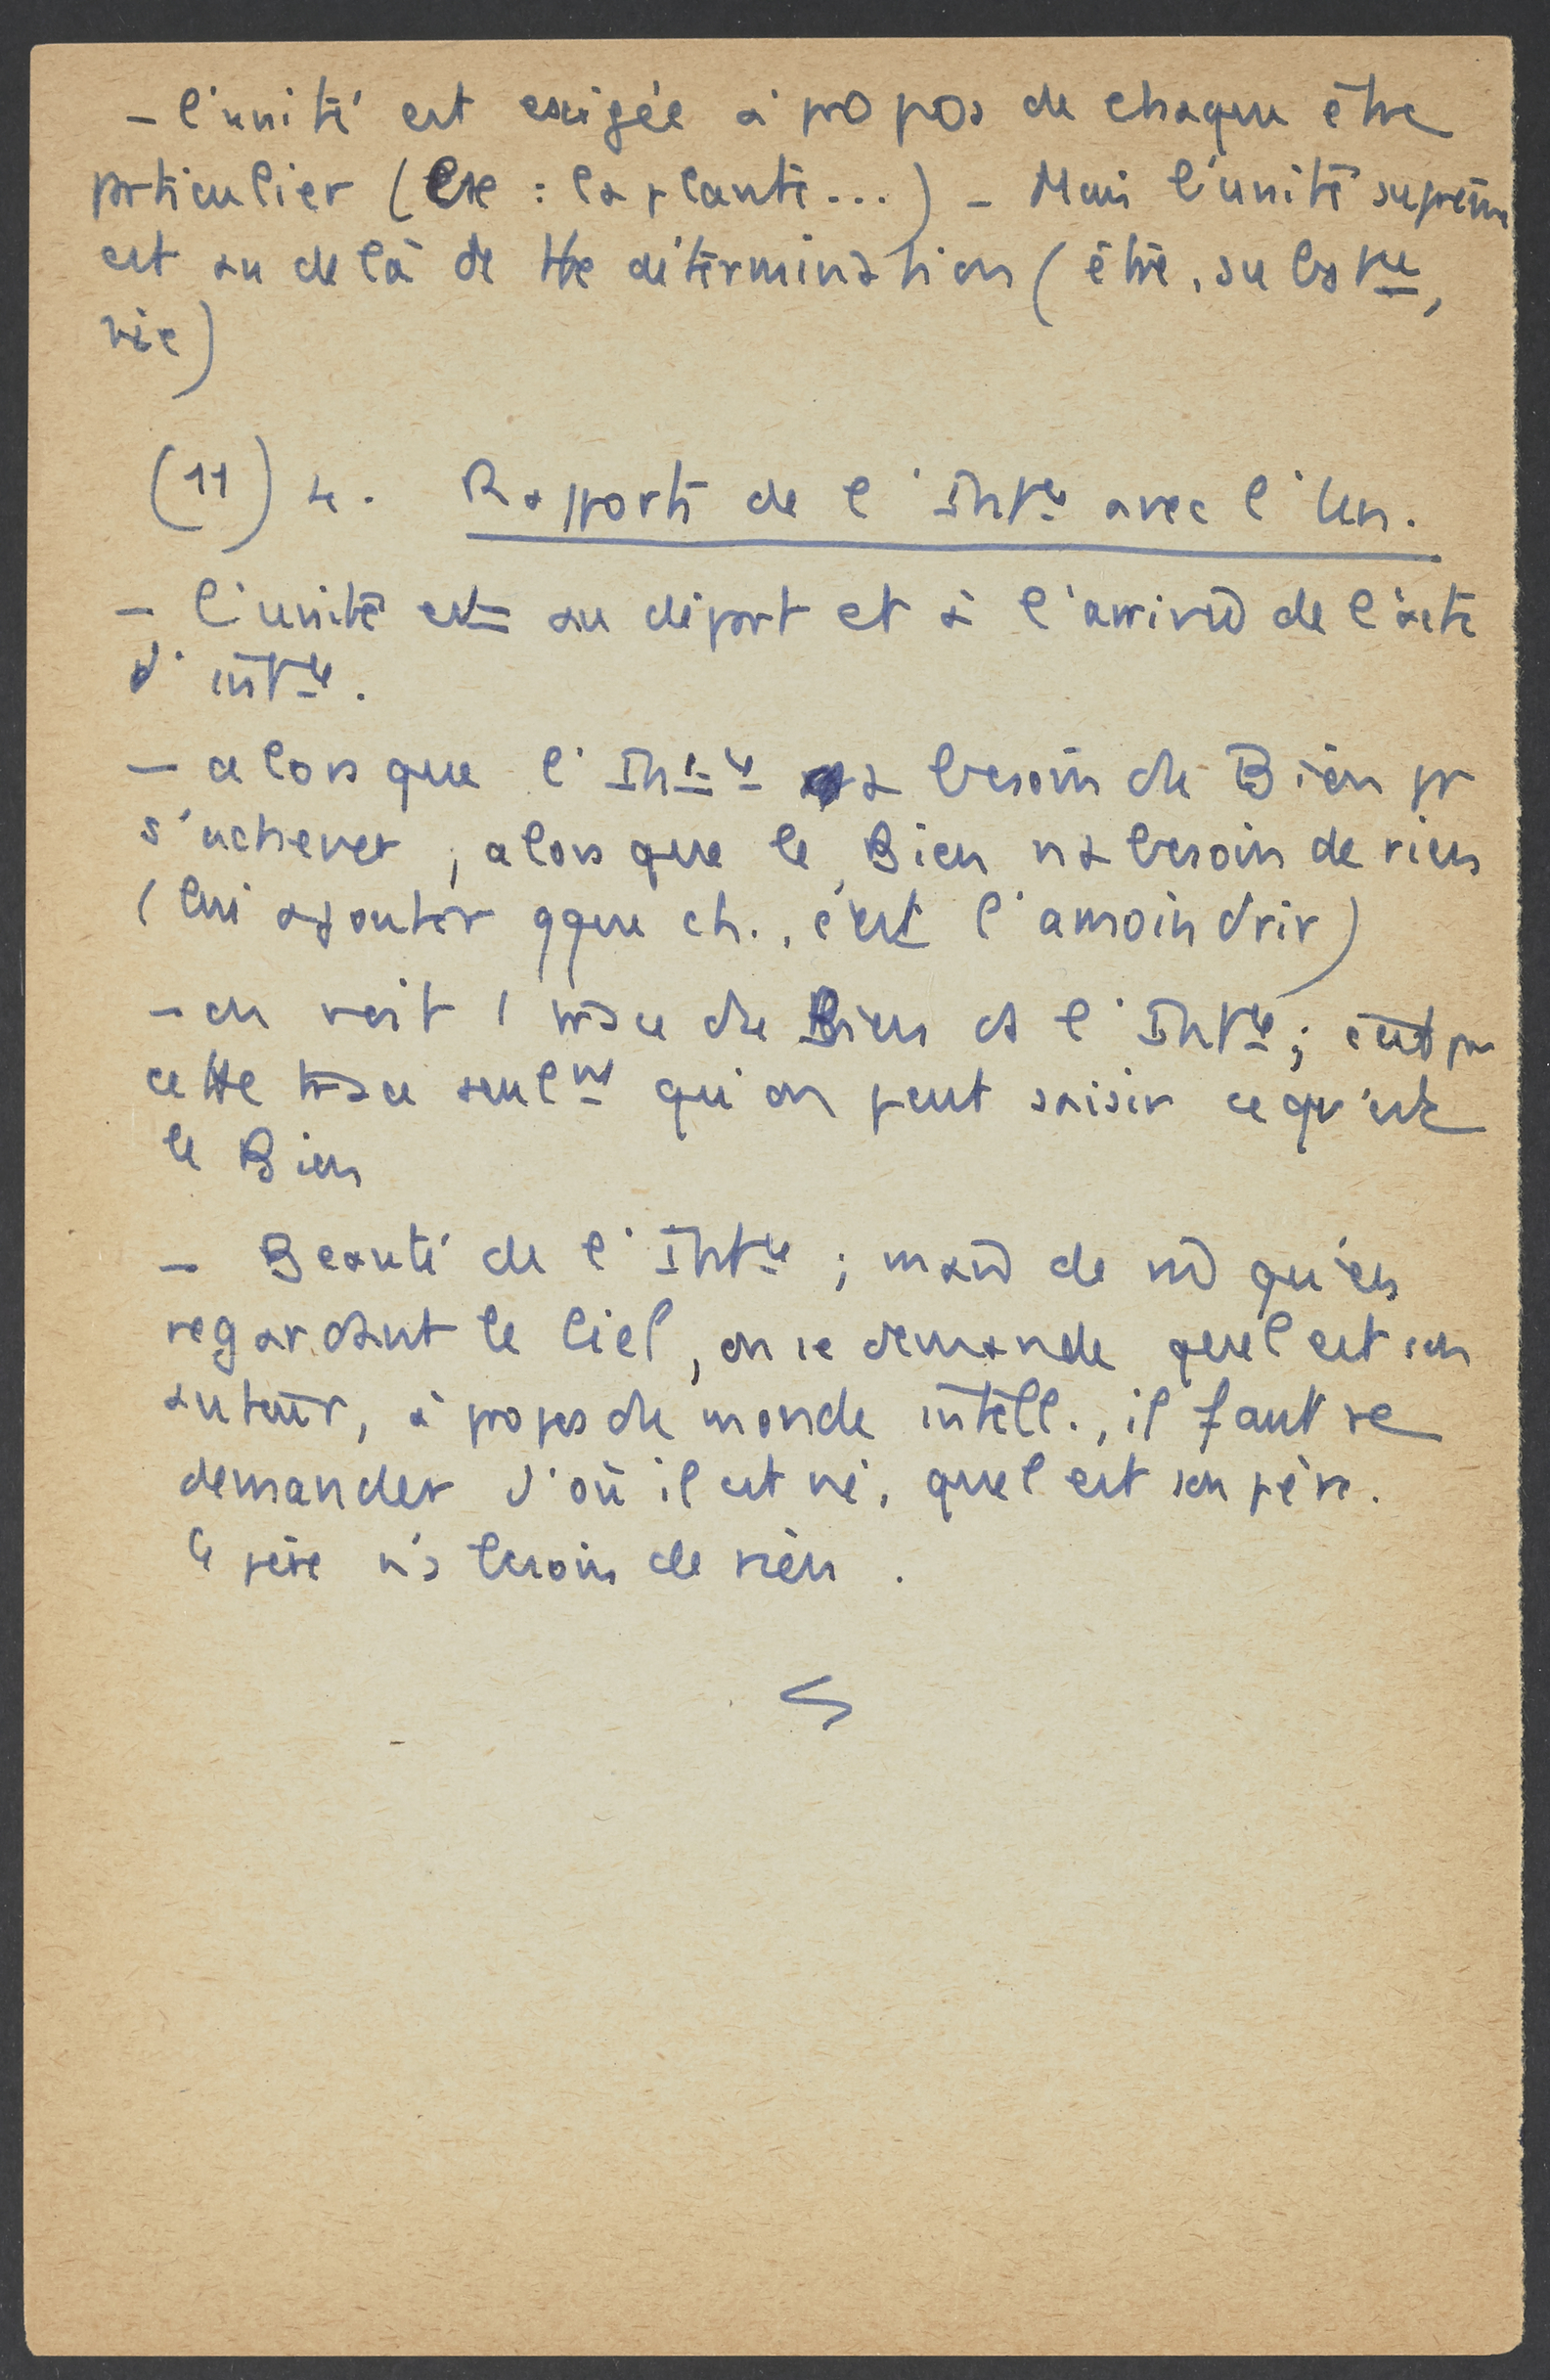 - l'unité est exigée à propos de chaque être
prticulier (Ex : la plante...) - Mais l'unité suprême
est au delà de tte détermination (être, substce,
vie)
(11) 4. Rapports de l'Intce avec l'Un.
- l'unité est au départ et à l'arrivée de l'acte
d'intce.
- alors que l'Intce a besoin du Bien pr
s'achever, alors que le Bien n'a besoin de rien
(lui ajouter qque ch., c'est l'amoindrir)
- on voit 1 trace du Bien ds l'Intce; c'est par
cette trace seulmt qu'on peut saisir ce qu'est
le Bien
- Beauté de l'Intce ; mais de m̂ qu'en
regardant le Ciel, on se demande quel est son
auteur, à propos du monde intell., il faut se
demander d'où il est né, quel est son père.
Ce père n'a besoin de rien.